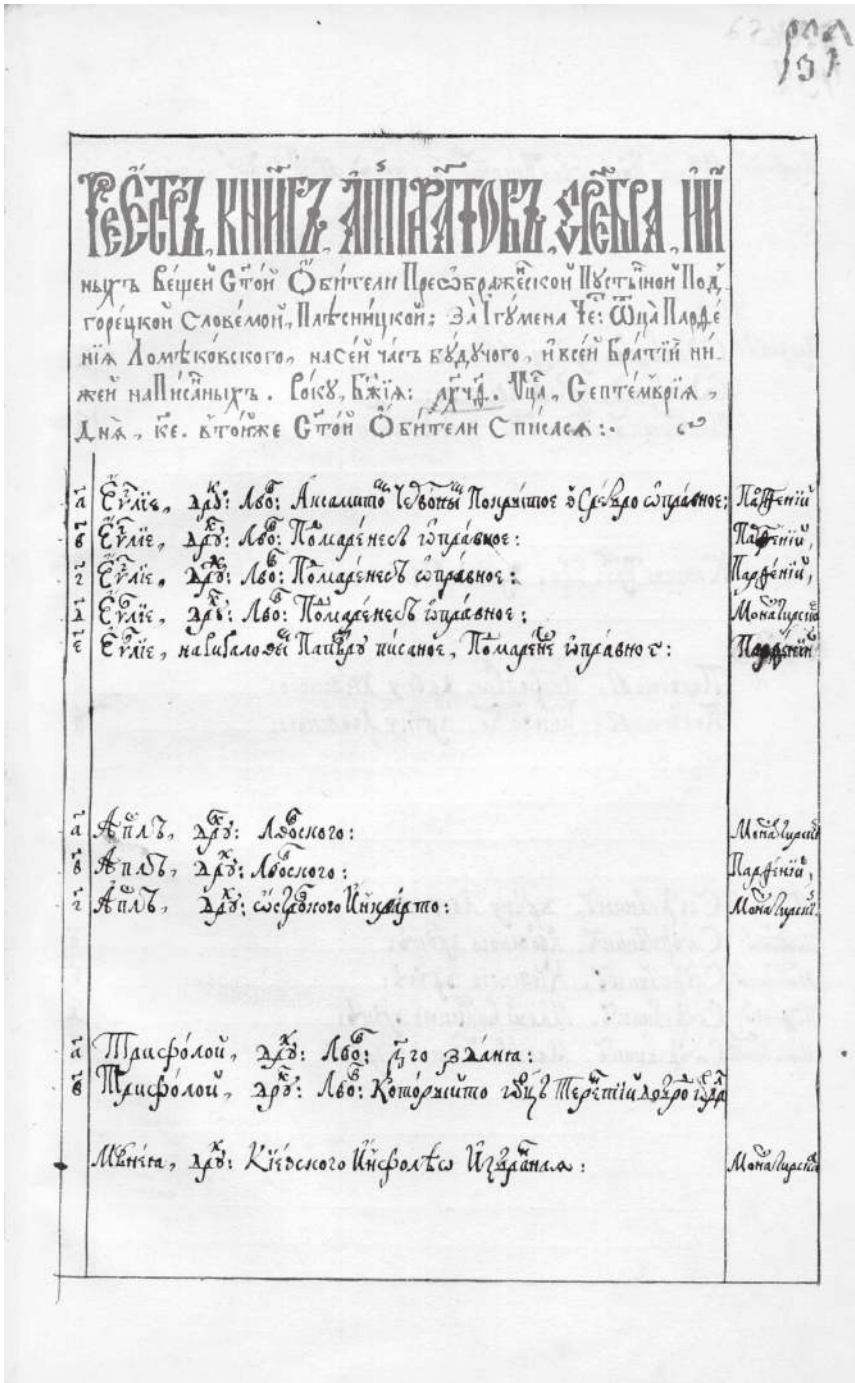 РЕЄСТРЪ, КНИГЪ, АППАРАТОВЪ, СРЕБРА, ИИ
ныхъ Вещей Стой Ѻбители Преѡбраженской Пустынной Под
горецкой Словемой, Плѣсницкой; За Ігумена Че: Ѿца Парѳе
нія Ломѣковского, на сей часъ будучого, и всей Братіи ни
жей написаныхъ. Року, Бжія: ахчд. Мца, Септемврія,
Дня, ке. в той же Стой Ѻбители Списася:
а Єѵліе, дрꙋк: Лвов: Аксамито Червоны Покрытое в Сребро ѡправное: Парѳеній
в Єѵліе, дрꙋк: Лвов: Помаренесъ ѡправное: Парѳеній,
г Єѵліе, дрꙋк: Лвов: Помаренесъ ѡправное: Парѳеній,
д Єѵліе, дрꙋк: Лвов: Помаренесъ ѡправное: Монастирское
е Єѵліе, Паперу писаное, ѡправное: Парѳеній
а Апⷭлъ, дрꙋк: Лвовского: Монастирский
в Апⷭлъ, дрꙋк: Лвовского: Парѳеній,
г Апⷭлъ, дрꙋк: ѡстрозкого Инкварто: Монастирский
а Трифолой, дрꙋк: Лвов: го зданя:
в Трифолой, дрꙋк: Лвов: Которыйто Терентій
Мѣнея, дрꙋк: Кіевского Инфолѣѡ Избраная: Монастирская